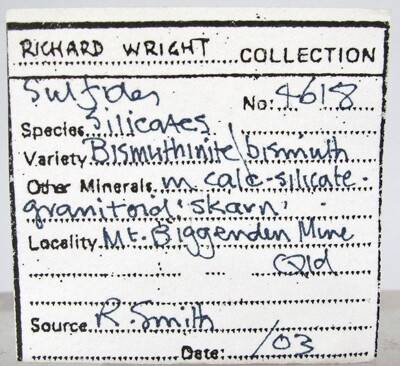 RICHARD WRIGHT COLLECTION
Sulfides No: 4618
Species Silicates
Variety Bismuthinite/bismuth
Other Minerals m calc-silicate.
granitoid 'skarn'
Locality Mt. Biggenden Mine
Qld
Source R. Smith
Date: /03